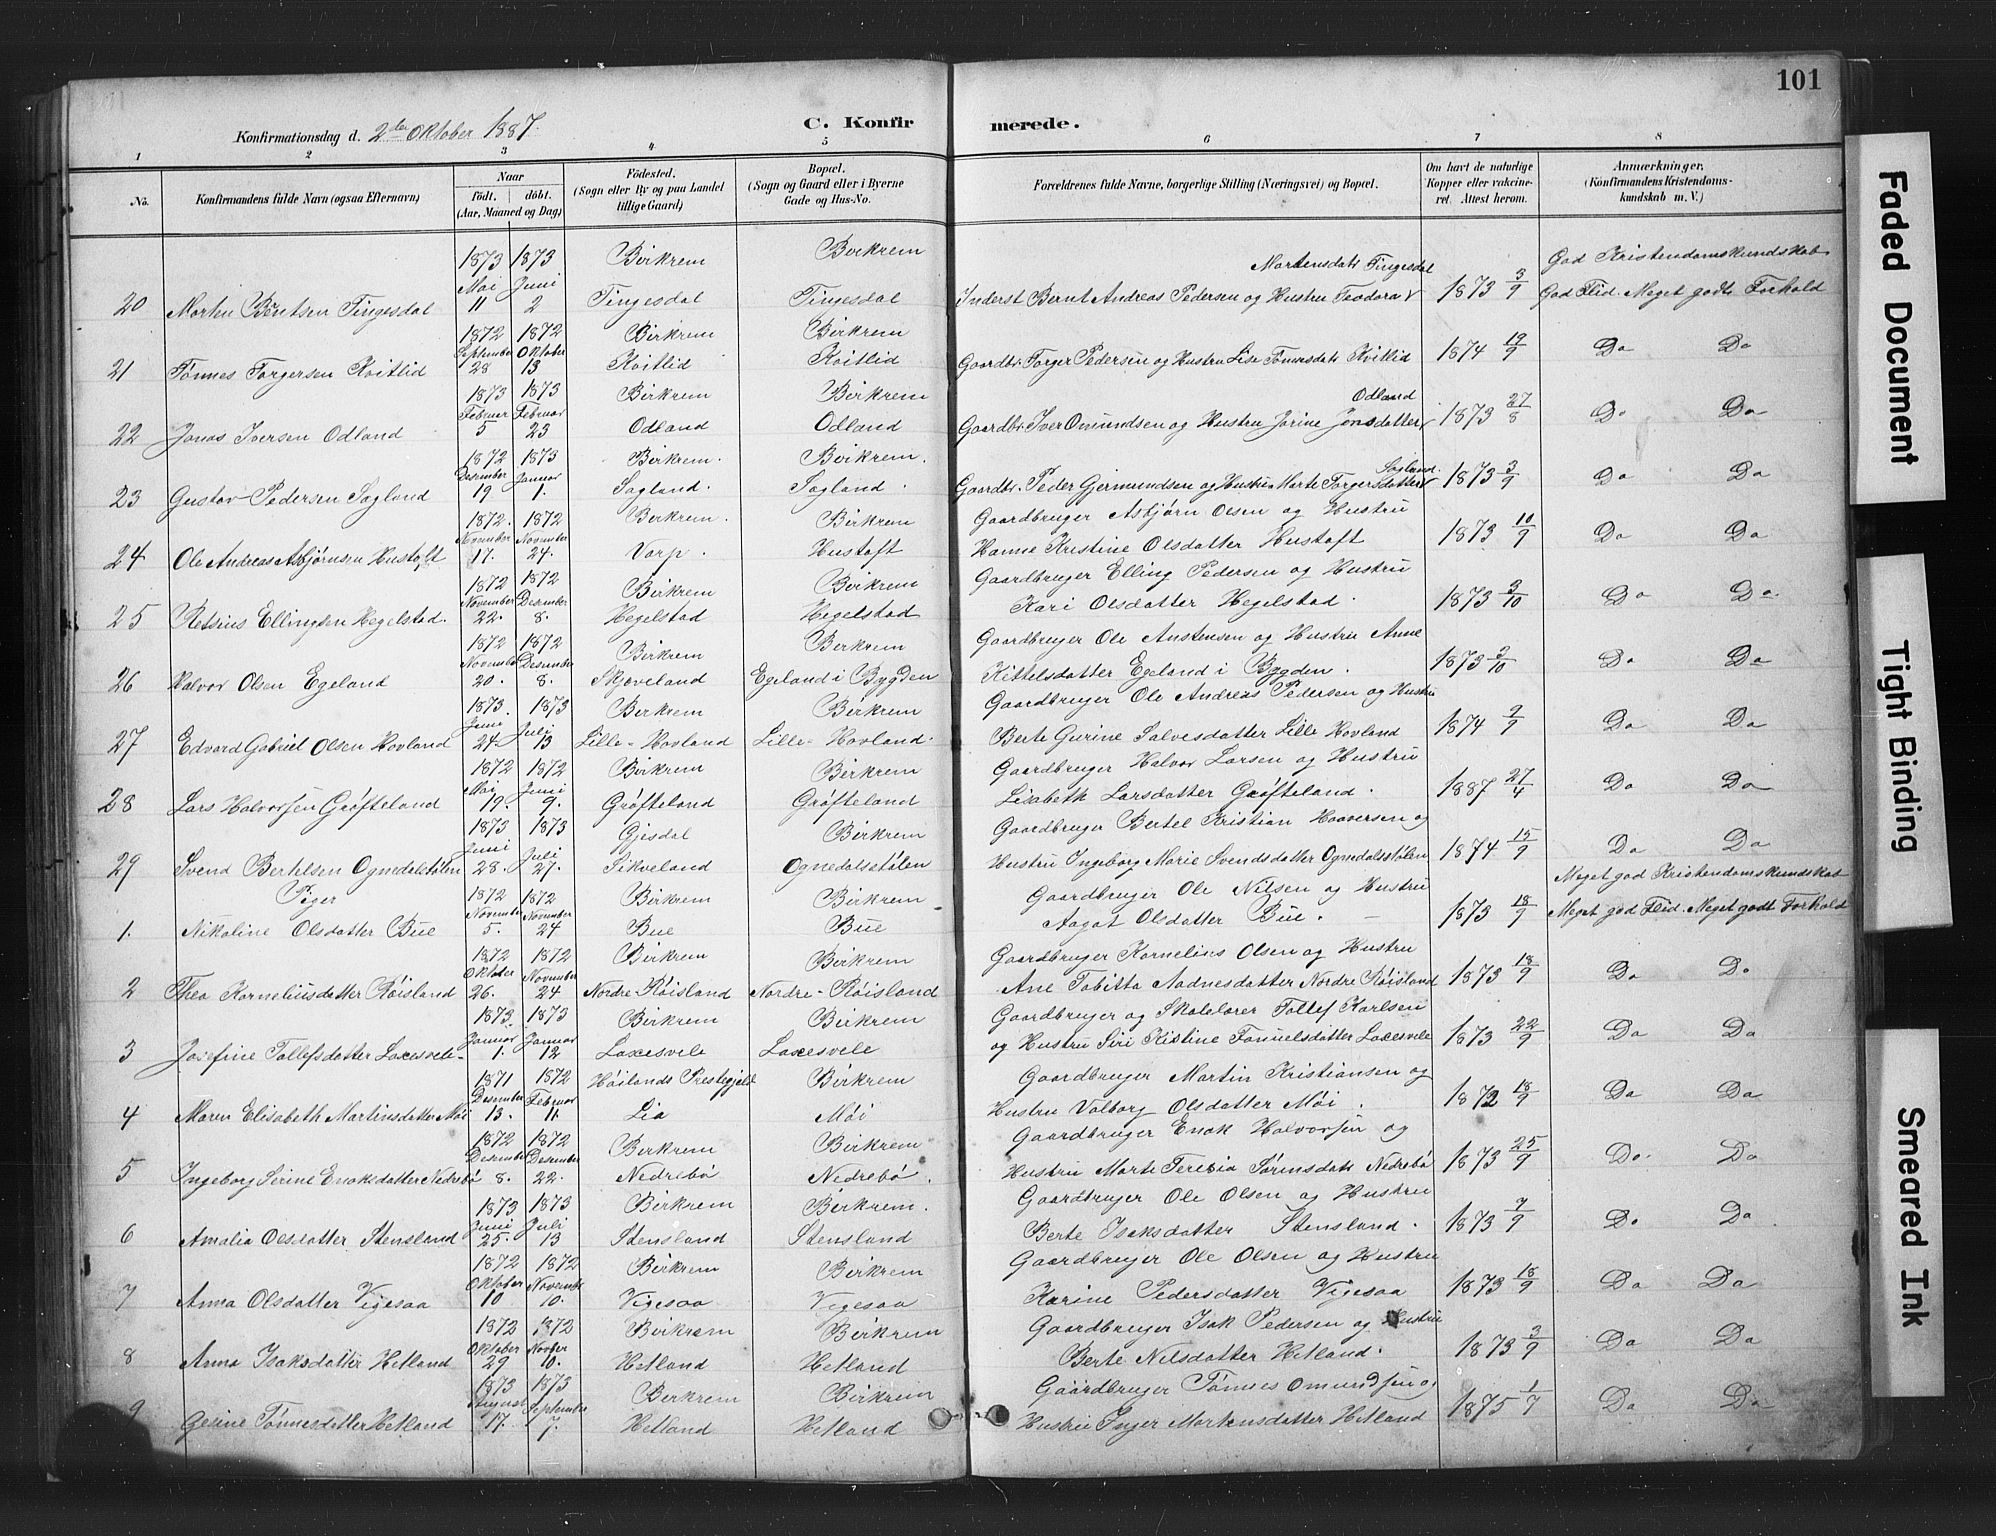 101
Konfirmationsdag d. 2den Oktober 1887.
C. Konfirmerede.
1 2 3 4 5 6 7 8
No. Konfirmandens fulde Navn (ogsaa Efternavn) Naar født. døbt. (Aar, Maaned og Dag) Fødested. (Sogn eller By og paa Landet tillige Gaard) Bopæl. (Sogn og Gaard eller i Byerne Gade og Hus-No. Forældrenes fulde Navne, borgerlige Stilling (Næringsvei) og Bopæl. Om havt de naturlige Kopper eller vaccineret. Attest herom. Anmærkninger, (Konfirmandens Kristendomskundskab m. V.)
1873 1873 Birkrem Birkrem Martensdatr Tingesdal God Kristendomskundskab
20 Morten Berntsen Tingesdal Mai 11 Juni 2 Tingesdal Tingesdal Inderst Bernt Andreas Pedersen og Hustru Teodora 1873 3/9 God Flid. Meget godt Forhold
1872 1872 Birkrem Birkrem
21 Tønnes Torgersen Kvitlid September 28 Oktober 13 Kvitlid Kvitlid Gaardbr. Torger Pedersen og Hustru Lise Tønnesdatr Kvitlid 1874 19/9 Do Do
1873 1873 Birkrem Birkrem Odland
22 Jonas Iversen Odland Februar 5 Februar 23 Odland Odland Gaardbr. Iver Omundsen og Hustru Jorine Jonsdatter 1873 27/8 Do Do
1872 1873 Birkrem. Birkrem. Sagland.
23 Gustav Pedersen Sagland Desember 19 Januar 1. Sagland. Sagland. Gaardbr. Peder Gjermundsen og Hustru Marte Torgersdatter 1873 3/9 Do Do
1872. 1872 Birkrem. Birkrem Gaardbruger Asbjørn Olsen og Hustru
24 Ole Andreas Asbjørnsen Hustoft November 17. November 24. Vorp. Hustoft Hanna Kristine Olsdatter Hustoft 1873 10/9 Do Do
1872 1872 Birkrem Birkrem Gaardbruger Elling Pedersen og Hustru
25 Retsius Ellingsen Hegelstad. November 22. Desember 8. Hegelstad Hegelstad Kari Olsdatter Hegelstad. 1873 3/10 Do Do
1872 1872 Birkrem Birkrem Gaardbruger Ole Austensen og Hustru Anne
26 Halvor Olsen Egeland November 20. Desember 8. Skjeveland Egeland i Bygden Kittelsdatter Egeland i Bygden. 1873 3/10 Do Do
1873. 1873 Birkrem Birkrem Gaardbruger Ole Andreas Pedersen og Hustru
27 Edvard Gabriel Olsen Hovland Juni 24. Juli 13 Lille-Hovland Lille-Hovland. Berte Gurine Salvesdatter Lille Hovland 1874 2/9 Do Do
1872 1872 Birkrem Birkrem Gaardbruger Halvor Larsen og Hustru
28 Lars Halvorsen Grøfteland Mai 19. Juni 9. Grøfteland Grøfteland Lisabeth Larsdatter Grøfteland. 1887 27/4 Do Do
1873. 1873 Gjesdal Birkrem Gaardbruger Bertel Kristian Haaversen og
29 Svend Bertelsen Ognedalstølen Juni 28. Juli 27. Sikveland Ognedalsstølen Hustru Ingeborg Marie Svendsdatter Ognedalsstølen 1874 15/9 Do Do
Piger 1872 1872 Birkrem Birkrem Gaardbruger Ole Nilsen og Hustru Meget god Kristendomskundskab
1. Nikoline Olsdatter Bue November 5. November 24 Bue Bue Aagot Olsdatter Bue. 1873 18/9 Meget god Flid. Meget godt Forhold
1872 1872 Birkrem Birkrem Gaardbruger Kornelius Olsen og Hustru
2 Thea Korneliusdatter Røisland Oktober 26. November 24 Nordre-Røisland Nordre-Røisland Ane Tobitta Aadnesdatter Nordre Røisland 1873 18/9 Do Do
1873. 1873 Birkrem Birkrem Gaardbruger og Skolelærer Tollef Karlsen
3 Josefine Tollefsdatter Laxesvele Januar 1. Januar 12 Laxesvele Laxesvele og Hustru Siri Kristine Tonnelsdatter Laxesvele 1873 22/9 Do Do
1871 1872 Høilands Prestegjeld Birkrem Gaardbruger Martin Kristiansen og
4 Maren Elisabeth Martinsdatter Møi Desember 13. Februar 11 Lia Møi Hustru Valborg Olsdatter Møi. 1872 18/9 Do Do
1872 1872 Birkrem Birkrem Gaardbruger Enok Halvorsen og
5 Ingeborg Serine Enoksdatter Nedrebø Desember 8. Desember 22. Nedrebø Nedrebø. Hustru Marte Teresia Sørensdatr Nedrebø 1873 25/9 Do Do
1873 1873 Birkrem Birkrem. Gaardbruger Ole Olsen og Hustru
6 Amalia Olsdatter Stensland Juni 25. Juli 13 Stensland Stensland Berte Isaksdatter Stensland. 1873 7/9 Do Do
1872 1872 Birkrem Birkrem Gaardbruger Ole Olsen og Hustru
7 Anna Olsdatter Vigesaa Oktober 10 November 10. Vigesaa Vigesaa Karine Pedersdatter Vigesaa 1873 18/9 Do Do
1872 1872 Birkrem Birkrem Gaardbruger Isak Pedersen og Hustru
8 Anna Isaksdatter Hetland Oktober 29 Novber 10. Hetland Hetland Berte Nilsdatter Hetland. 1873 3/9 Do Do
1873 1873 Birkrem Birkrem Gaardbruger Tønnes Omundsen og
9 Gesine Tønnesdatter Hetland August 17. September 7. Hetland Hetland Hustru Inger Martensdatter Hetland 1875 1/7 Do Do
Faded Document
Tight Binding
Smeared Ink